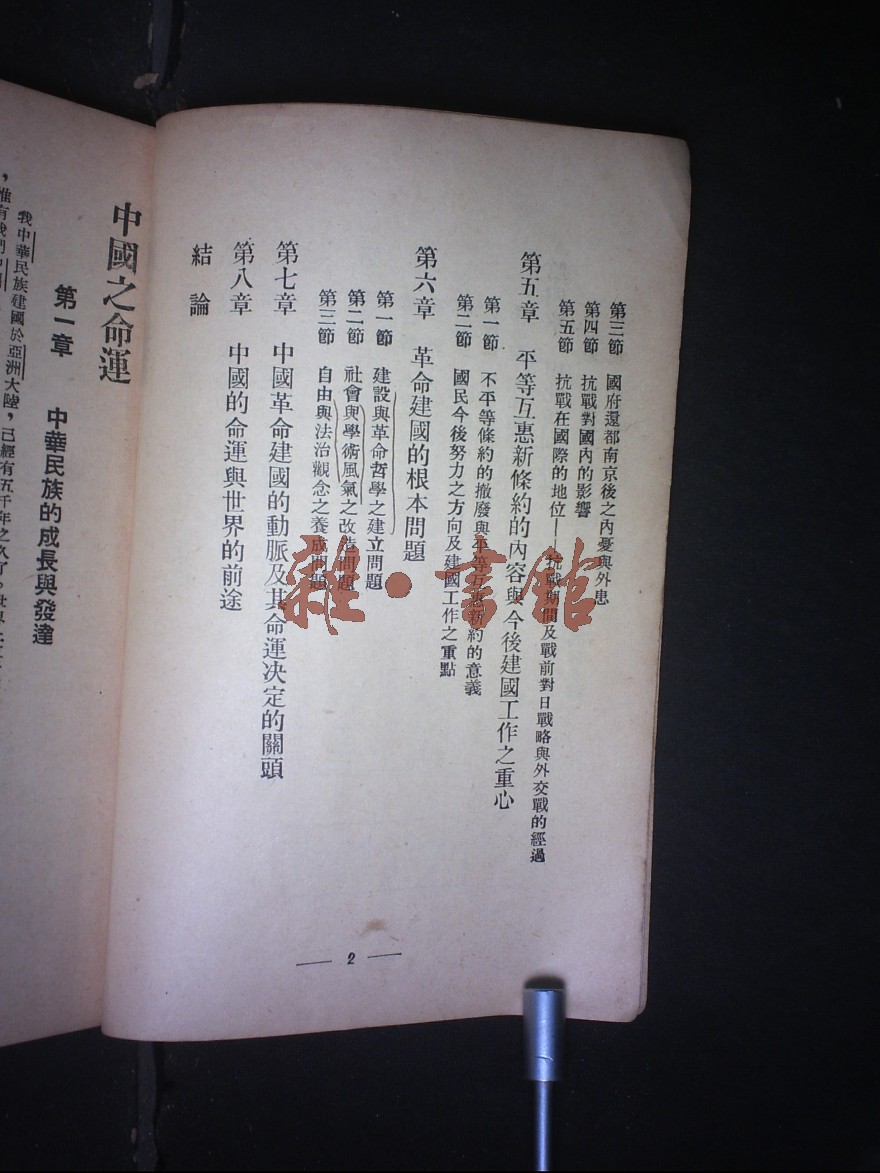 第三節　國府還都南京後之內憂與外患
第四節　抗戰對國內的影響
第五節　抗戰在國際的地位——抗戰期間及戰前對日戰略與外交戰的經過
第五章　平等互惠新條約的內容與今後建國工作之重心
第一節　不平等條約的撤廢與平等互惠新約的意義
第二節　國民今後努力之方向及建國工作之重點
第六章　革命建國的根本問題
第一節　建設與革命哲學之建立問題
第二節　社會與學術風氣之改造問題
第三節　自由與法治觀念之養成問題
第七章　中國革命建國的動脈及其命運決定的關頭
第八章　中國的命運與世界的前途
結論
2
中國之命運
第一章　中華民族的成長與發達
我中華民族建國於亞洲大陸，已經有五千年之久了。世界上
，惟有我們中國
雜·書館